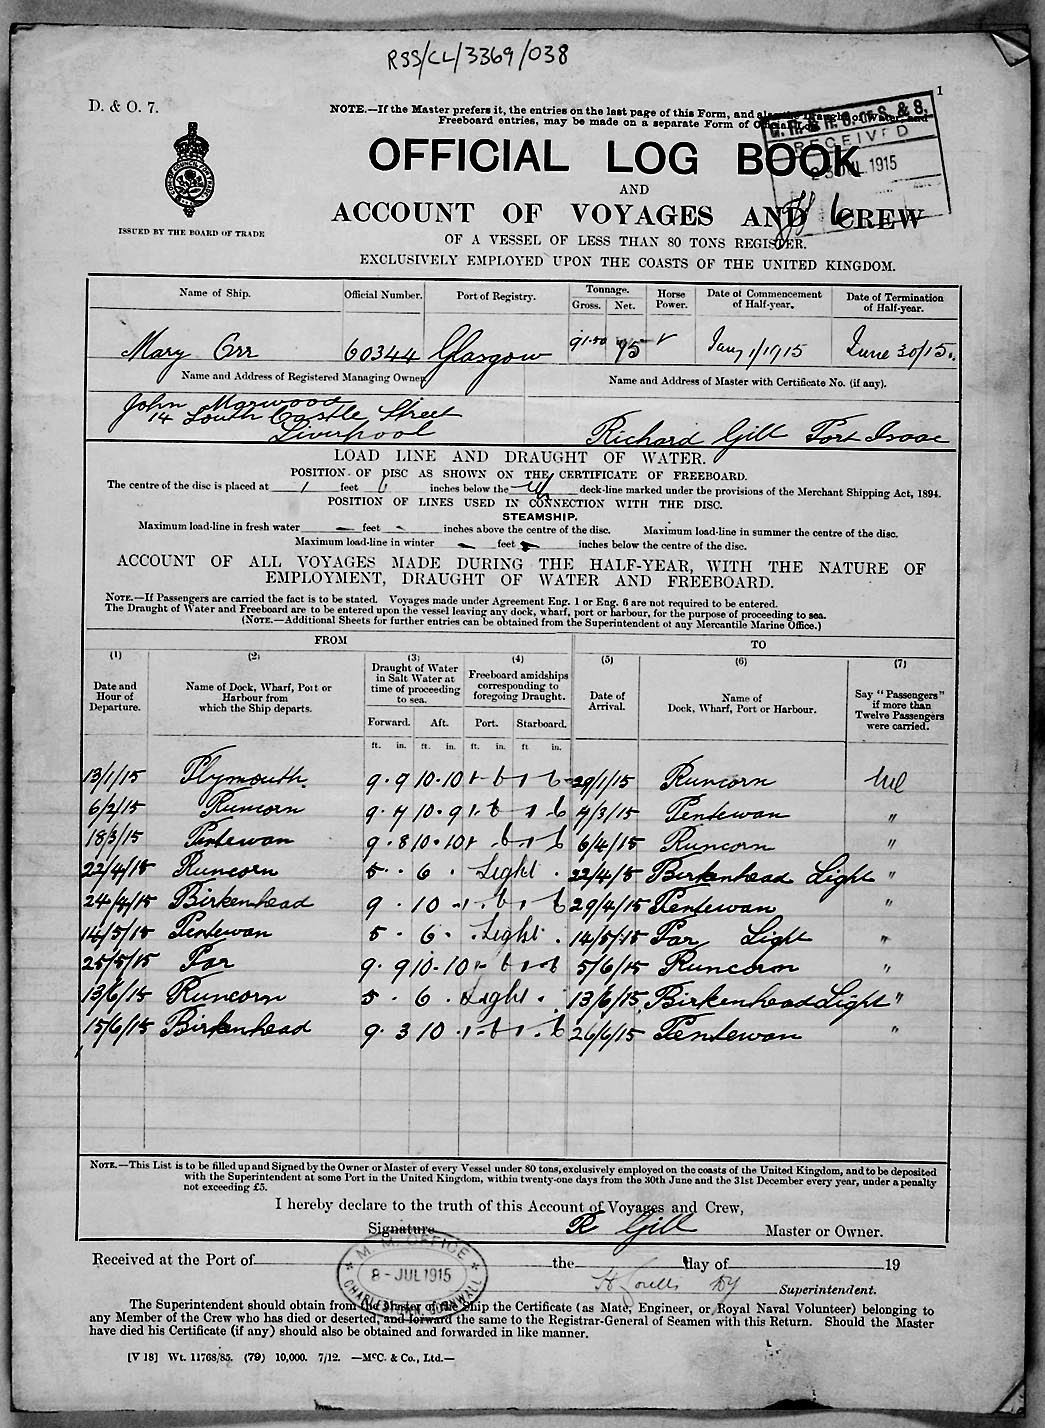 RSS/CL/3369/038
1
D. & O. 7.
NOTE.—If the Master prefers it, the entries on the last page of this Form, and also the Draught of Water and
Freeboard entries, may be made on a separate Form of Official Log.
RECEIVED
23 JUL 1915
OFFICIAL LOG BOOK
AND
ACCOUNT OF VOYAGES AND CREW
ISSUED BY THE BOARD OF TRADE
OF A VESSEL OF LESS THAN 80 TONS REGISTER.
EXCLUSIVELY EMPLOYED UPON THE COASTS OF THE UNITED KINGDOM.
Name of Ship. Official Number. Port of Registry. Tonnage. Gross. Net. Horse Power. Date of Commencement of Half-year. Date of Termination of Half-year.
Mary Orr 60344 Glasgow 91.50 75 Jany 1/1915 June 30/15.
Name and Address of Registered Managing Owner Name and Address of Master with Certificate No. (if any).
John Marwood
14 South Castle Street
Liverpool Richard Gill Port Isaac
LOAD LINE AND DRAUGHT OF WATER.
POSITION OF DISC AS SHOWN ON THE CERTIFICATE OF FREEBOARD.
The centre of the disc is placed at 1 feet 6 inches below the deck-line marked under the provisions of the Merchant Shipping Act, 1894.
POSITION OF LINES USED IN CONNECTION WITH THE DISC.
STEAMSHIP.
Maximum load-line in fresh water — feet - inches above the centre of the disc. Maximum load-line in summer the centre of the disc.
Maximum load-line in winter - feet - inches below the centre of the disc.
ACCOUNT OF ALL VOYAGES MADE DURING THE HALF-YEAR, WITH THE NATURE OF
EMPLOYMENT, DRAUGHT OF WATER AND FREEBOARD.
NOTE.—If Passengers are carried the fact is to be stated. Voyages made under Agreement Eng. 1 or Eng. 6 are not required to be entered.
The Draught of Water and Freeboard are to be entered upon the vessel leaving any dock, wharf, port or harbour, for the purpose of proceeding to sea.
(NOTE.—Additional Sheets for further entries can be obtained from the Superintendent of any Mercantile Marine Office.)
FROM TO
(1) (2) (3) (4) (5) (6) (7)
Date and Hour of Departure. Name of Dock, Wharf, Port or Harbour from which the Ship departs. Draught of Water in Salt Water at time of proceeding to sea. Freeboard amidships corresponding to foregoing Draught. Date of Arrival. Name of Dock, Wharf, Port or Harbour. Say "Passengers" if more than Twelve Passengers were carried.
Forward. Aft. Port. Starboard.
ft. in. ft. in. ft. in. ft in.
13/1/15 Plymouth 9.9 10.10 1-6 1-6 29/1/15 Runcorn Nil
6/2/15 Runcorn 9.7 10.9 1.6 1-6 7/3/15 Pentewan "
18/3/15 Pentewan 9.8 10.10 1-6 1-6 6/4/15 Runcorn "
22/4/15 Runcorn 5. 6. Light. 22/4/15 Birkenhead Light "
24/4/15 Birkenhead 9. 10 1-6 1-6 29/4/15 Pentewan "
14/5/15 Pentewan 5. 6. Light. 14/5/15 Par Light "
25/5/15 Par 9.9 10.10 1-6 1-6 5/6/15 Runcorn "
13/6/15 Runcorn 5. 6. Light. 13/6/15 Birkenhead Light "
15/6/15 Birkenhead 9.3 10. 1-6 1-6 26/6/15 Pentewan "
NOTE.—This List is to be filled up and Signed by the Owner or Master of every Vessel under 80 tons, exclusively employed on the coasts of the United Kingdom, and to be deposited
with the Superintendent at some Port in the United Kingdom, within twenty-one days from the 30th June and the 31st December every year, under a penalty
not exceeding £5.
I hereby declare to the truth of this Account of Voyages and Crew,
Signature R Gill Master or Owner.
Received at the Port of the day of 19
M. M. OFFICE
8 - JUL 1915
CHARLESTOWN, CORNWALL
Superintendent.
The Superintendent should obtain from the Master of the Ship the Certificate (as Mate, Engineer, or Royal Naval Volunteer) belonging to
any Member of the Crew who has died or deserted, and forward the same to the Registrar-General of Seamen with this Return. Should the Master
have died his Certificate (if any) should also be obtained and forwarded in like manner.
[V 18] Wt. 11768/85. (79) 10,000. 7/12. —McC. & Co., Ltd.—